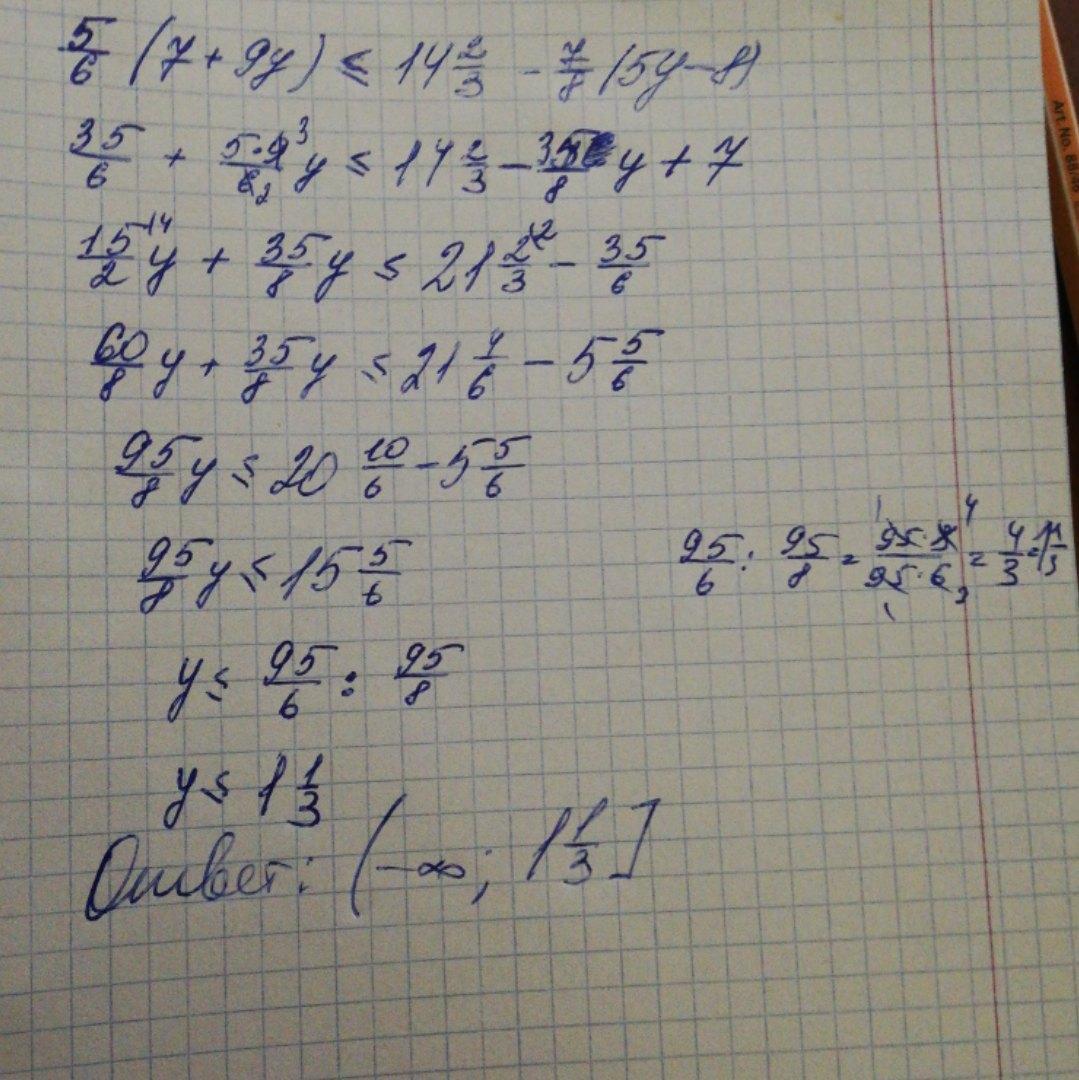 5/6 (7 + 9y) ≤ 14 2/3 - 7/8 (5y - 8)
35/6 + 5·9³/6₂ y ≤ 14 2/3 - 35/8 y + 7
15/2 \4 y + 35/8 y ≤ 21 2/3 \2 - 35/6
60/8 y + 35/8 y ≤ 21 4/6 - 5 5/6
95/8 y ≤ 20 10/6 - 5 5/6
95/8 y ≤ 15 5/6
95/6 : 95/8 = 95·8/95·6 = 4/3 = 1 1/3
y ≤ 95/6 : 95/8
y ≤ 1 1/3
Ответ: (-∞; 1 1/3]
Art No. 88/46